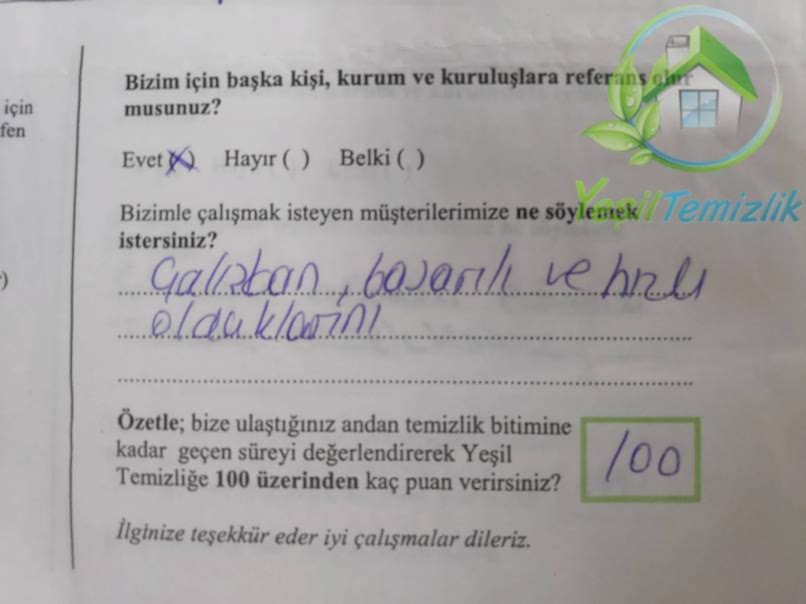 için
fen
Bizim için başka kişi, kurum ve kuruluşlara referans olur
musunuz?
Evet (X) Hayır ( ) Belki ( )
Bizimle çalışmak isteyen müşterilerimize ne söylemek
istersiniz?
Çalışkan, başarılı ve hızlı
olduklarını
Özetle; bize ulaştığınız andan temizlik bitimine
kadar geçen süreyi değerlendirerek Yeşil
Temizliğe 100 üzerinden kaç puan verirsiniz?
100
İlginize teşekkür eder iyi çalışmalar dileriz.
Yeşil Temizlik